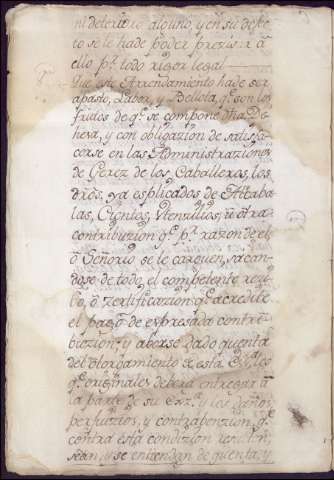 ni deterioro alguno, y en su defec
to se le hade poder presisar á
ello pr. todo rigor legal
Que este Arrendamiento hade ser
apasto, Labor, y Bellota, qe. son los
frutos de qe. se compone dha De-
hesa, y con obligazion de satisfa-
cerse en las Administraziones
de Gerez de los Caballeros, los
dros. ya esplicados de Alcaba
las, Cientos, Utensilios, ú otra
contribuzion qe. pr. razon de el
o Señorio se le carguen, sacan
dose de todo, el competente reci-
bo, ó zertificazion qe. acredite
el pago de espresada contri-
buzion, y aberse dado quenta
del otorgamiento de esta
qe. originales deberá entregar á
la parte de su Exa. y los daños,
perjuizios, y
contra esta condizion resulten,
sean, y se entiendan de quenta, y